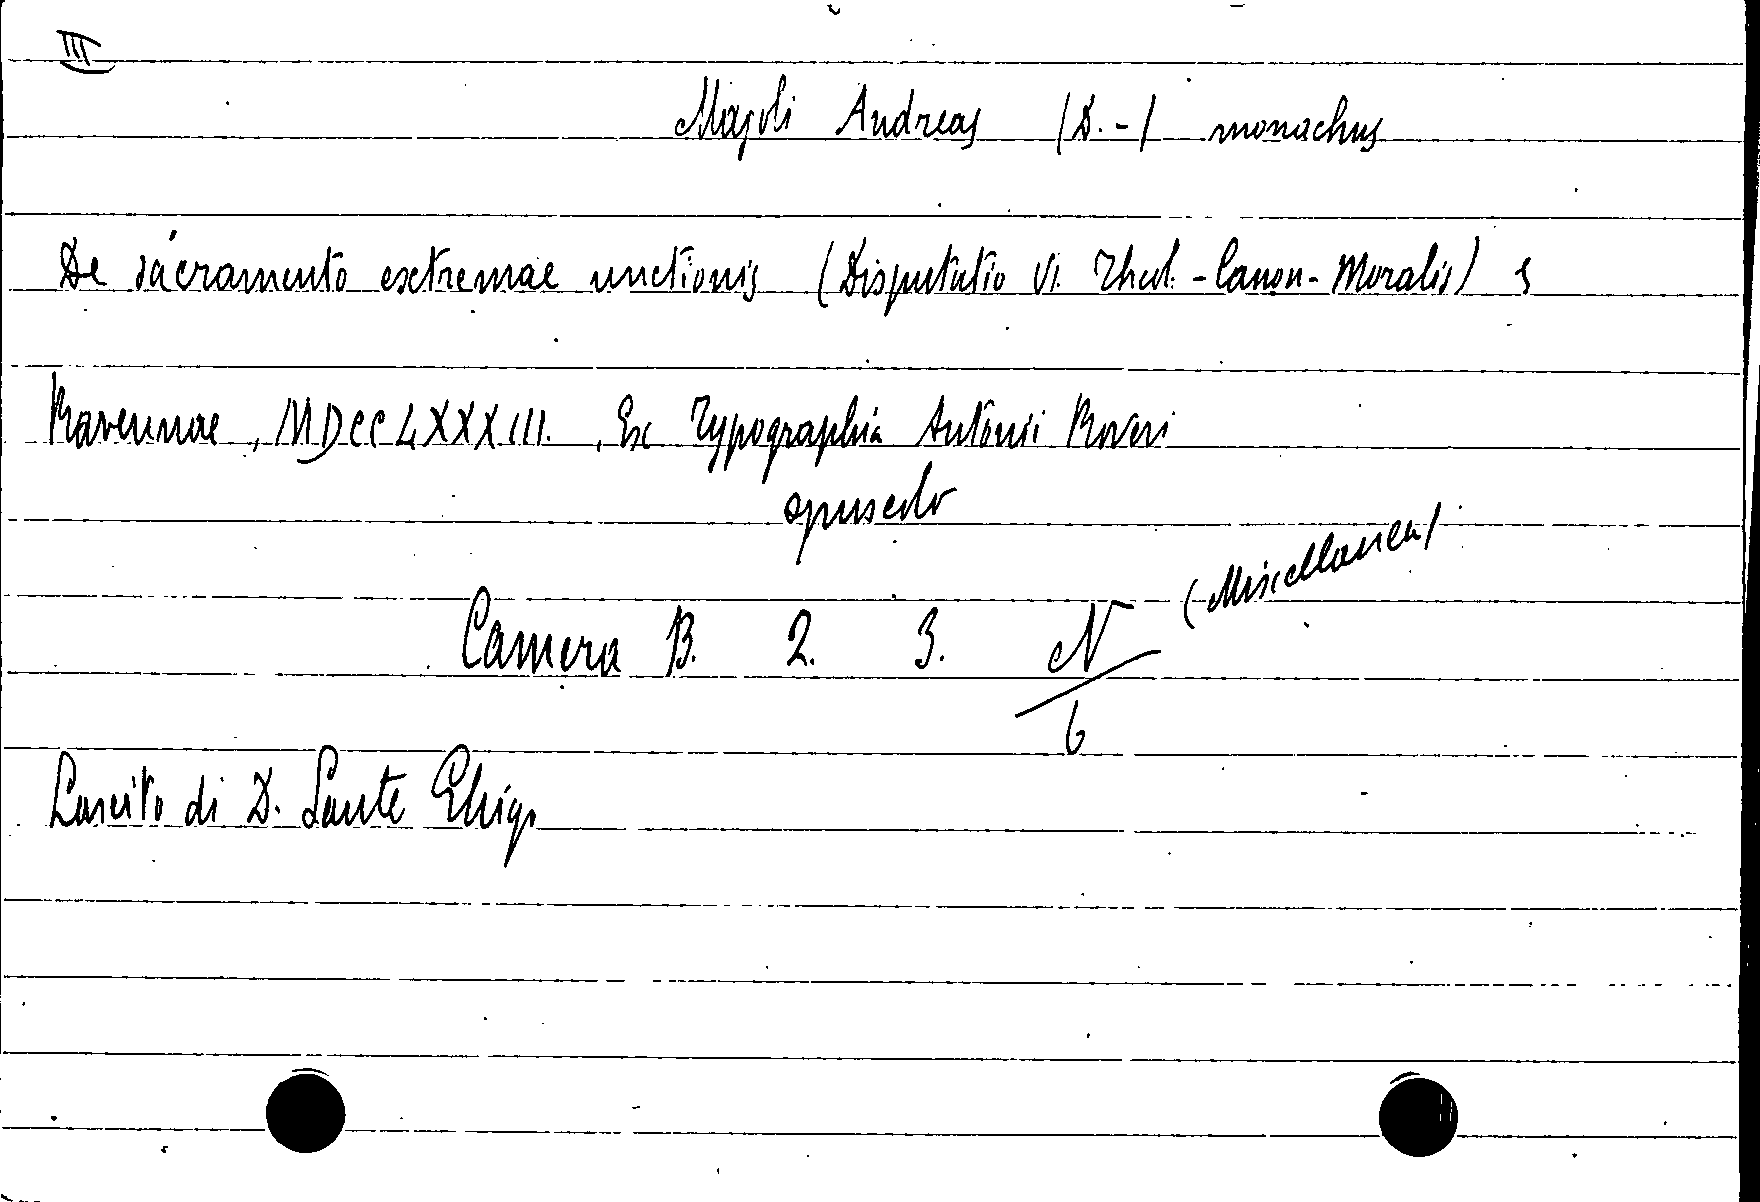 III
Majoli Andreas (D.-) monachus
De sacramento extremae unctionis (Disputatio VI. Theol.-Canon-Moralis) s
Ravennae, MDCCLXXXIII., Ex Typographia Antonii Roveri
opuscolo
(Miscellanea)
Camera B. 2. 3. N
6
Lascito di D. Sante Ghigi